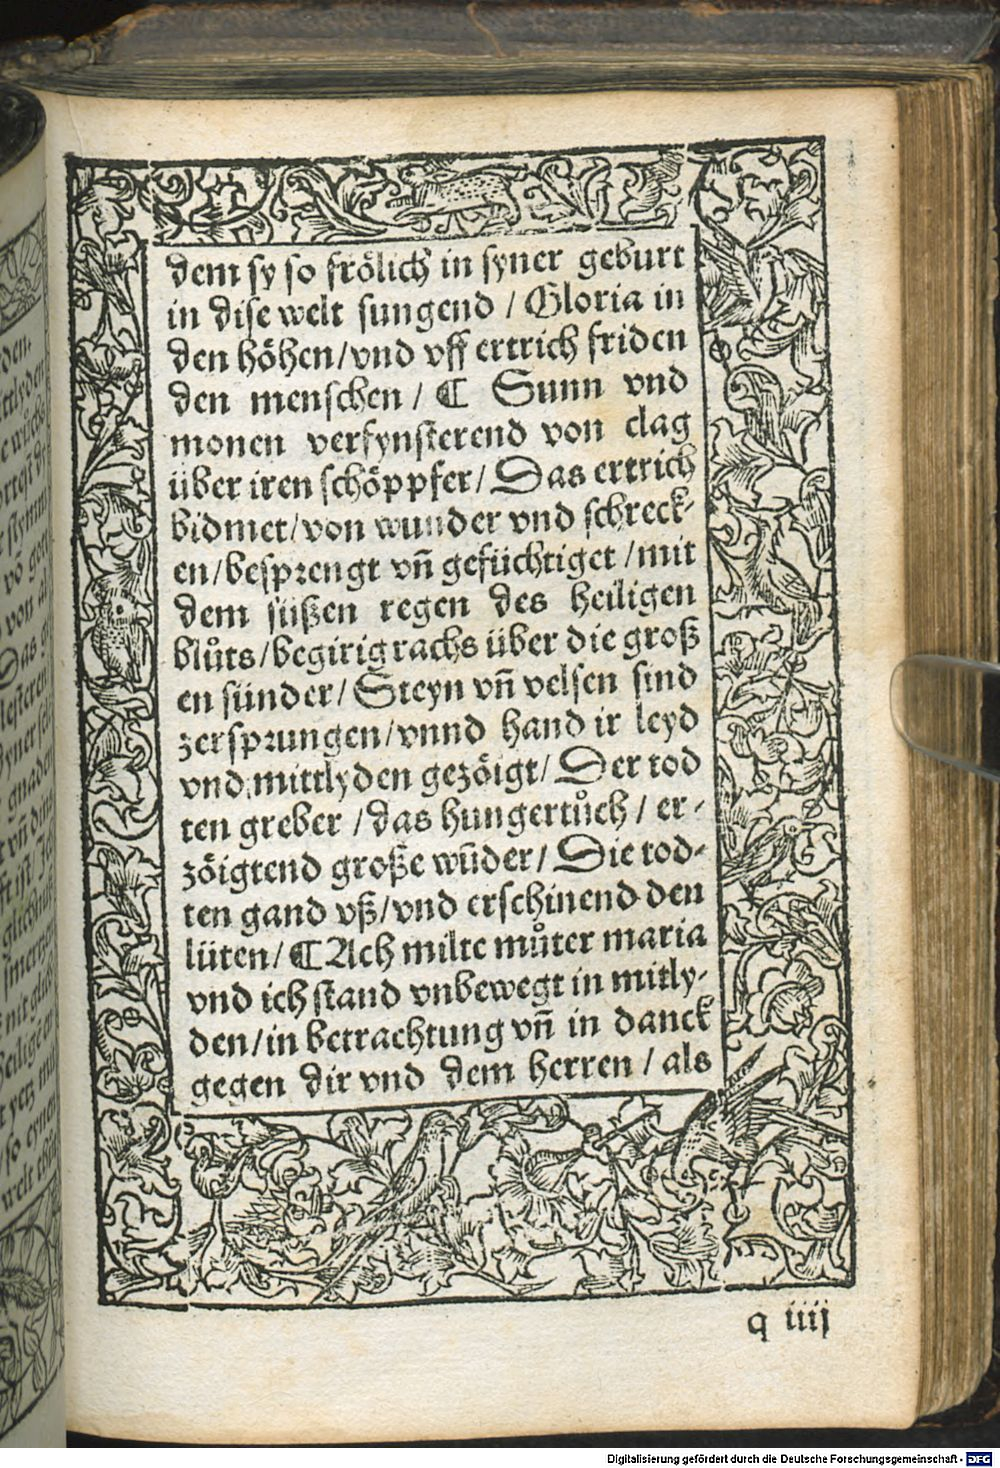 dem sy so frölich in syner geburt
in dise welt sungend / Gloria in
den höhen/vnd vff ertrich friden
den menschen / ¶ Sunn vnd
monen verfynsterend von clag
über iren schöppfer/ Das ertrich
bidmet/von wunder vnd schreck-
en/besprengt vñ gefüchtiget /mit
dem süßen regen des heiligen
blůts/begirig rachs über die groß
en sünder/ Steyn vñ velsen sind
zersprungen/vnnd hand ir leyd
vnd mittlyden gezöigt/ Der tod
ten greber /das hungertůch / er-
zöigtend große wũder/ Die tod-
ten gand vß/vnd erschinend den
lüten/ ¶ Ach milte můter maria
vnd ich stand vnbewegt in mitly-
den/in betrachtung vñ in danck
gegen dir vnd dem herren / als
q iiij
Digitalisierung gefördert durch die Deutsche Forschungsgemeinschaft - DFG